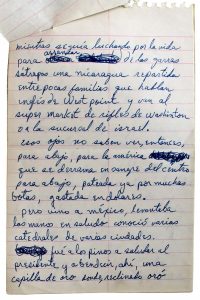 minutos seguía luchando por la vida
para arrancar de las garras
sátrapas una nicaragua repartida
entre pocas familias que hablan
inglés de West point y van al
super market de rifles de washinton
o la sucursal de israel.
esos ojos no saben ver, entonces,
para abajo, para la américa
que se derrama en sangre del centro
para abajo, pateada ya por muchas
botas, gastada en dólares.
pero vino a méxico, levantaba
las manos en saludo conoció varias
catedrales de varias ciudades.
fué a los pinos a saludar al
presidente y a bendecir, ahí, una
capilla de oro donde, reclinado oró